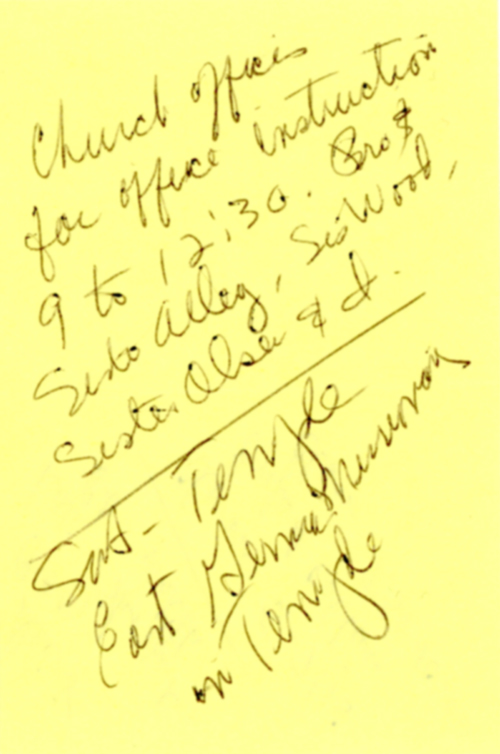 Church offices
for office instruction
9 to 12:30. Bro &
Sister Alley, Sis Wood,
Sister Olsen & I.
Sat - Temple
East German
on Temple